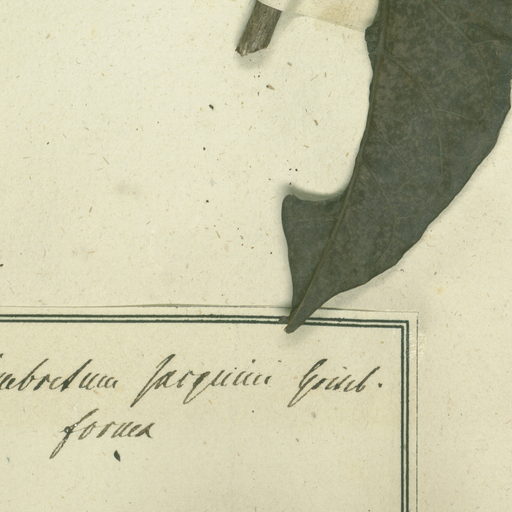 mbretum Jacquini Griseb.
forma